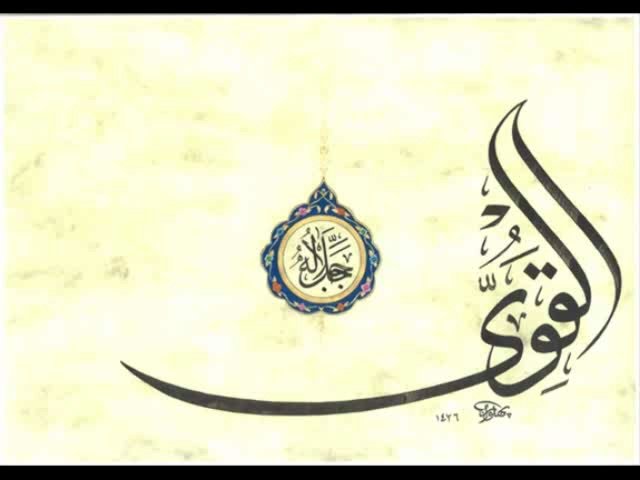 القويّ
جلّ جلاله
١٤٢٦